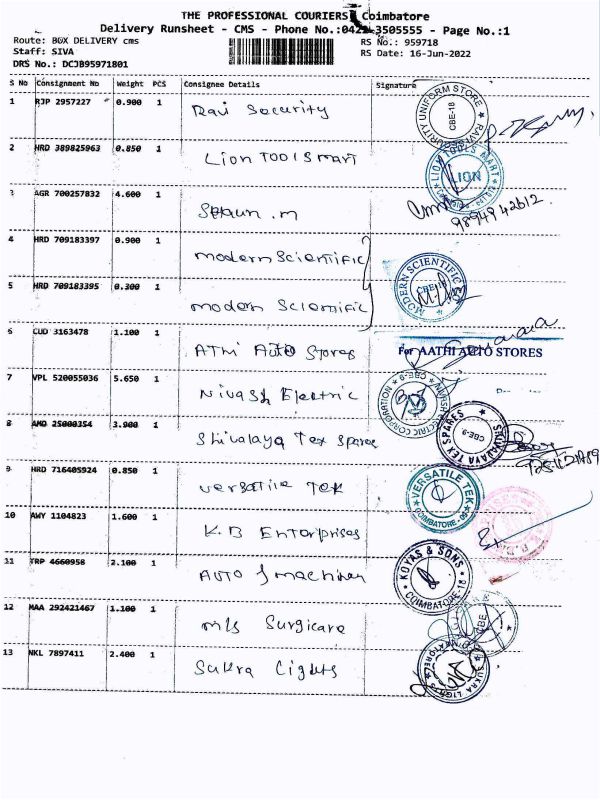 THE PROFESSIONAL COURIERS, Coimbatore
Delivery Runsheet - CMS - Phone No.:0422-3505555 - Page No.:1
Route: BOX DELIVERY cms RS No.: 959718
Staff: SIVA RS Date: 16-Jun-2022
DRS No.: DCJB95971801
S No Consignment No Weight PCS Consignee Details Signature
1 RJP 2957227 0.900 1 Ravi Security
2 HRD 389825963 0.850 1 Lion TOOlSmart
LION
3 AGR 700257832 4.600 1 Shaun.m
98949 42612
4 HRD 709183397 0.900 1 modern Scientific
MODERN SCIENTIFIC
5 HRD 709183395 0.300 1 modern Scientific
6 CUD 3163478 1.100 1 Athi Auto Stores
For AATHI AUTO STORES
7 VPL 520055036 5.650 1 Nivash Electric
8 AMD 25000354 3.900 1 Shivalaya Tex Spares
SHIVALAYA TEX SPARES
CBE-9
9 HRD 716405924 0.850 1 versatile Tek
VERSATILE TEK
COIMBATORE
10 AWY 1104823 1.600 1 K.B Enterprises
11 TRP 4660958 2.100 1 Auto & machines
KOYAS & SONS
COIMBATORE-18
12 MAA 292421467 1.100 1 m/s Surgicare
CBE
13 NKL 7897411 2.400 1 Sukra Lights
SUKRA LIGHTS